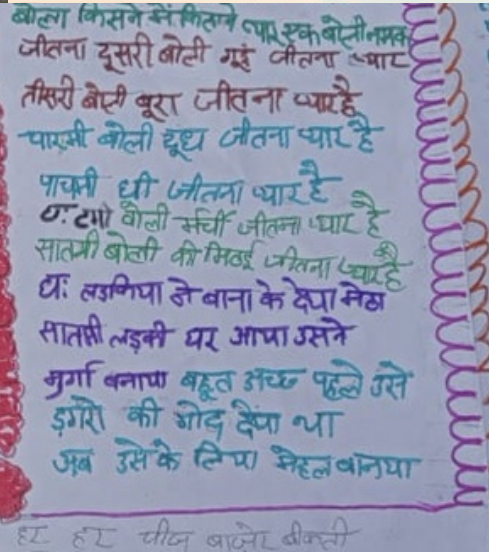 बोला किसने में कितने प्यार एक बोली नमक
जीतना दूसरी बोली गुड़ जीतना प्यार
तीसरी बोली बूरा जीतना प्यार है
चारमी बोली दूध जीतना प्यार है
पाचमी घी जीतना प्यार है
बोली मर्ची जीतना प्यार है
सातमी बोली की मिठाई जीतना प्यार है
छः लडकिया ने बाना के देया मेठा
सातमी लड़की घर आपा उसने
मुर्गा बनाया बहूत अच्छ पहले उसे
डगरो की गोद देया था
अब उसे के लिया मेहल बानया
हर हर चीज बाजेर बीकती